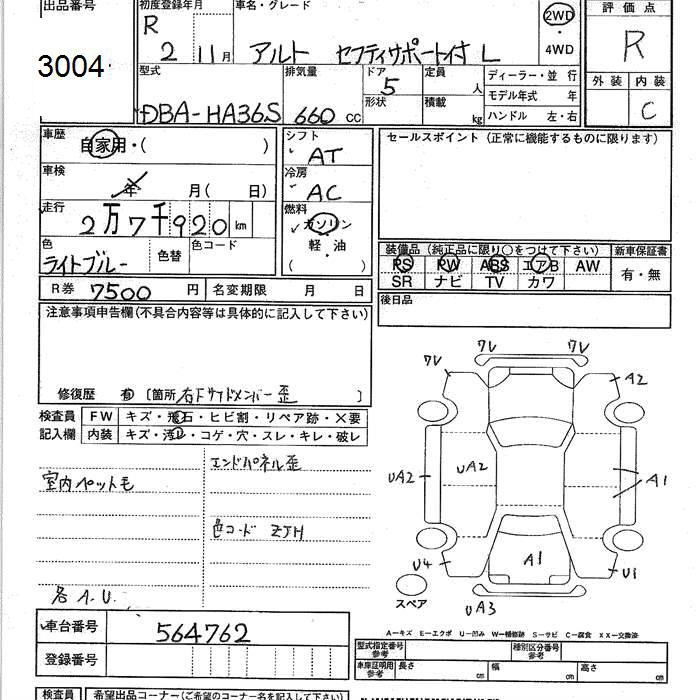 出品番号 初度登録年月 車名・グレード 2WD ・ 4WD 評価点
3004 R 2 11月 アルト セフティサポート付 L R
型式 排気量 ドア 5 定員 人 ディーラー・並 行 外装 内装
モデル年式 年
DBA-HA36S 660 cc 形状 積載 kg ハンドル 左・右 C
車歴 自家用・( ) シフト AT セールスポイント(正常に機能するものに限ります)
車検 年 月( 日) 冷房 AC
走行 2万7千920km 燃料 ガソリン
軽・油
( )
色 ライトブルー 色替 色コード
装備品(純正品に限り○をつけて下さい) 新車保証書
PS PW ABS エアB AW 有・無
SR ナビ TV カワ
R券 7500 円 名変期限 月 日
後日品
注意事項申告欄(不具合内容等は具体的に記入して下さい)
修復歴 有 〔箇所 右Fサイドメンバー歪 〕
検査員 FW キズ・飛石・ヒビ割・リペア跡・×要
記入欄 内装 キズ・汚レ・コゲ・穴・スレ・キレ・破レ
エンドパネル歪
室内ペットモ
色コード ZJH
各A.U.
7V 7V
7V A2
UA2 UA2 A1
U4 A1 U1
スペア UA3
A-キズ E-エクボ U-凹み W-補修跡 S-サビ C-腐食 XX-交換済
車台番号 564762
登録番号
型式指定番号 参考 種別区分番号 参考
車庫証明用 参考 長さ cm 幅 cm 高さ cm
検査員 希望出品コーナー(ご希望のコーナー名を記入して下さい)